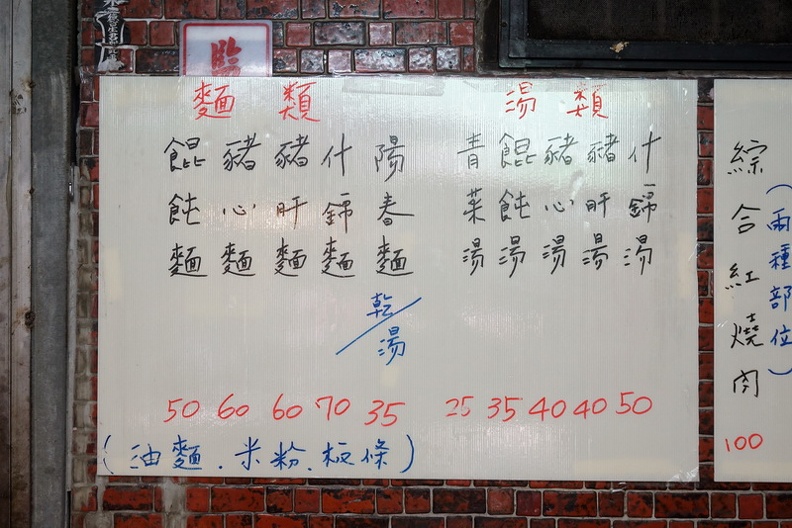 臨
麵類
陽春麵 乾/湯 35
什錦麵 70
豬肝麵 60
豬心麵 60
餛飩麵 50
(油麵.米粉.板條)
湯類
什錦湯 50
豬肝湯 40
豬心湯 40
餛飩湯 35
青菜湯 25
綜合紅燒肉 100
(兩種部位)